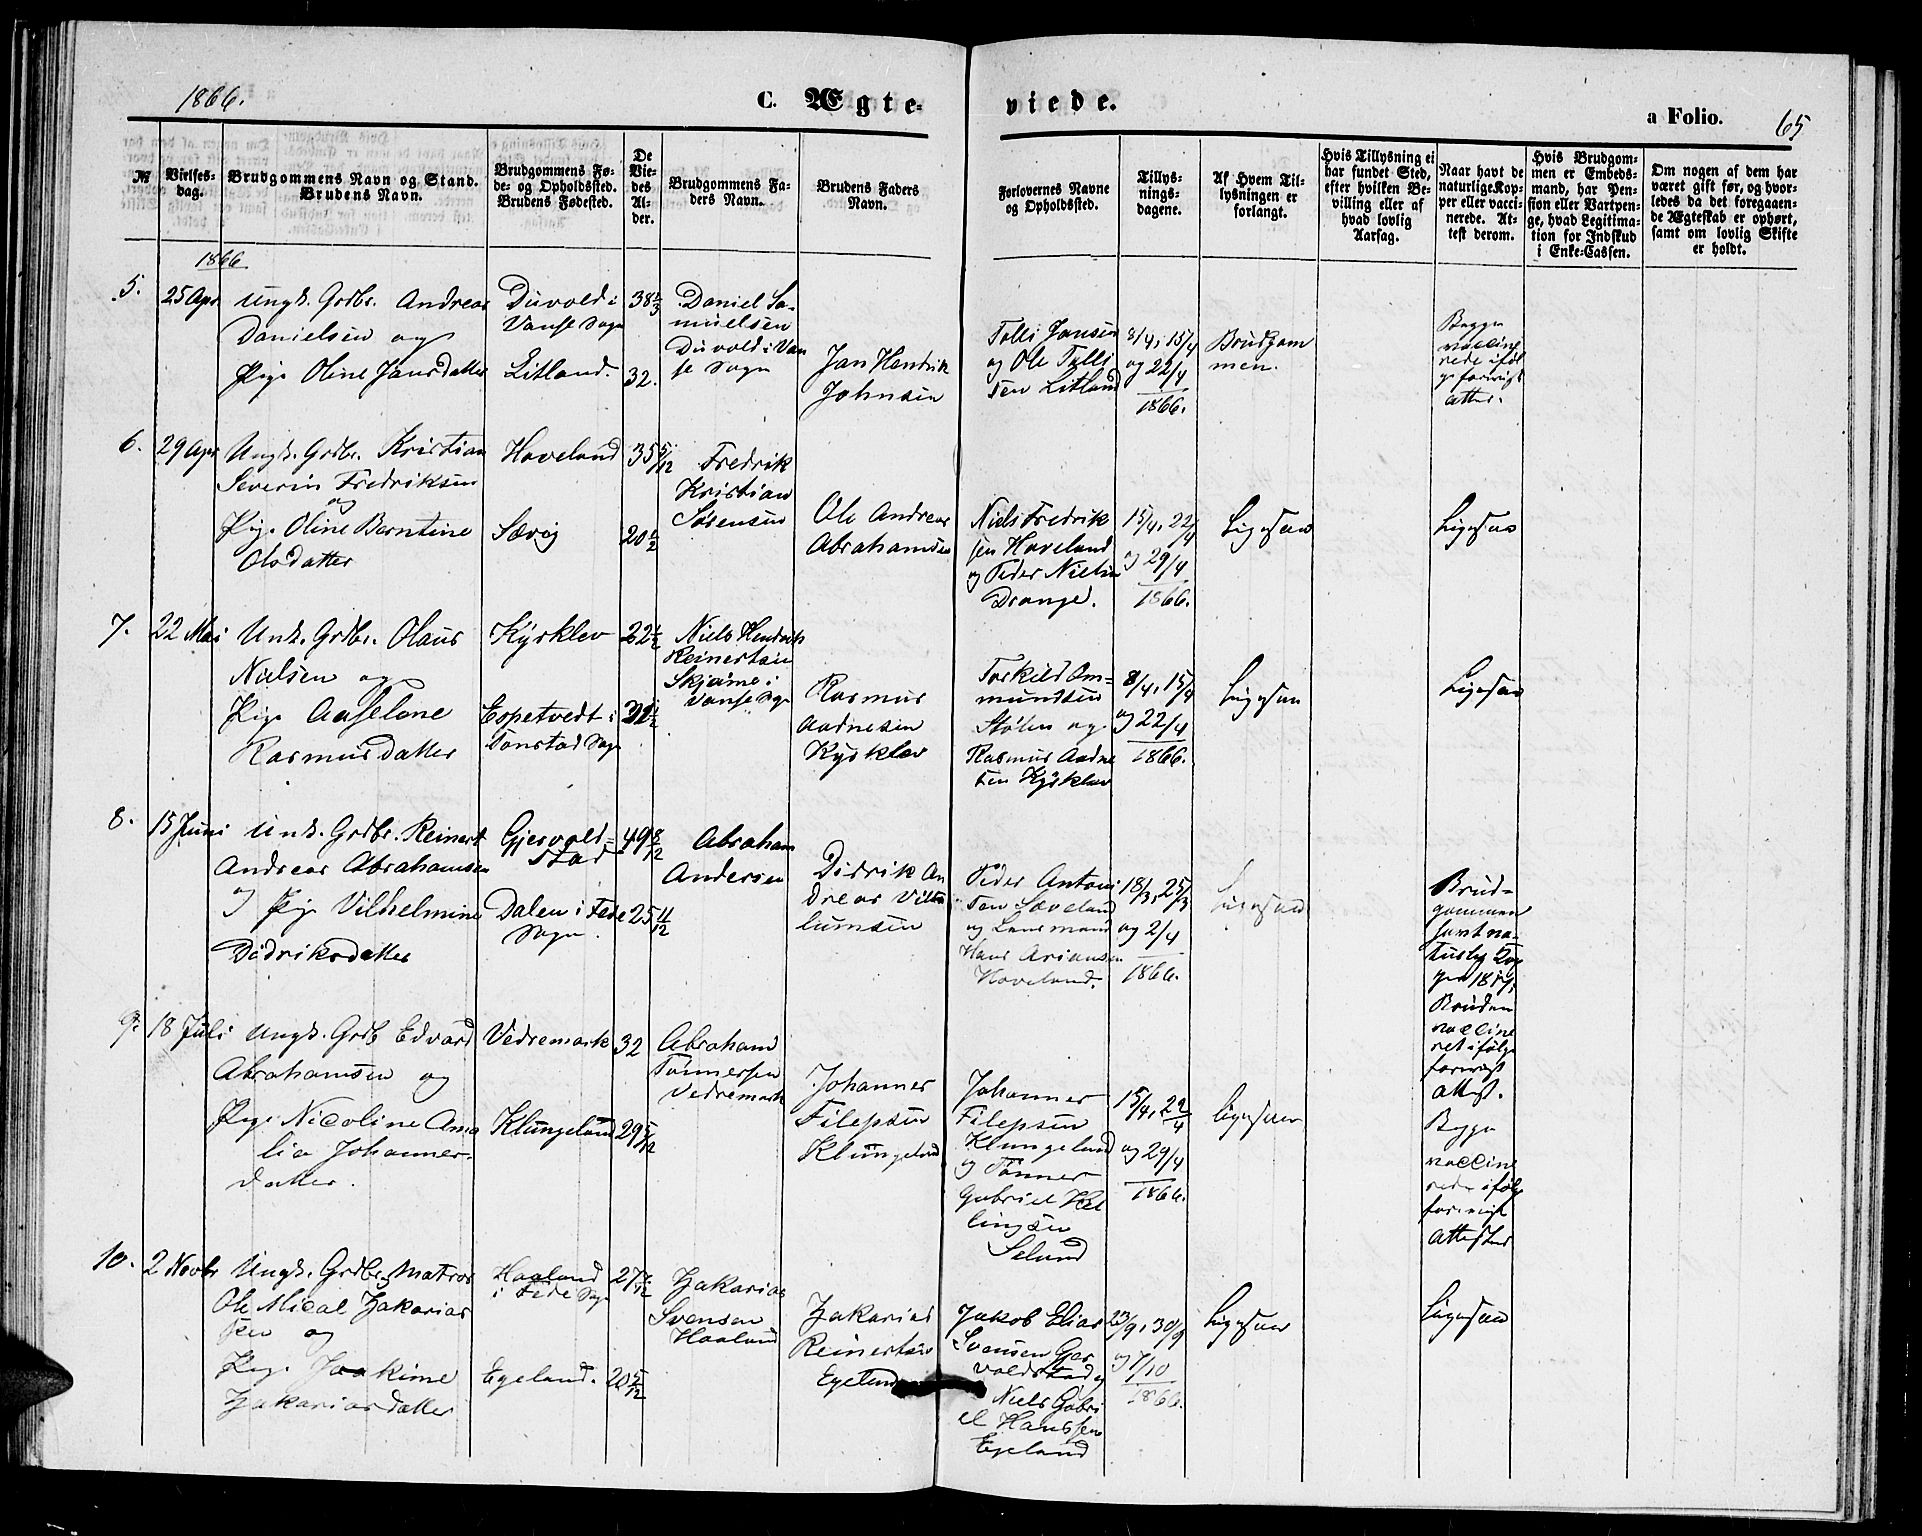 1866.
C. Ægte-
viede.
a Folio.
65
№
Vielses-
dag.
Brudgommens Navn og Stand.
Brudens Navn.
Brudgommens Fø-
de- og Opholdssted.
Brudens Fødested.
De
Vie-
des
Al-
der.
Brudgommens Fa-
ders Navn.
Brudens Faders
Navn.
Forlovernes Navne
og Opholdssted.
Tillys-
nings-
dagene.
Af Hvem Til-
lysningen er
forlangt.
Hvis Tillysning ei
har fundet Sted,
efter hvilken Be-
villing eller af
hvad lovlig
Aarsag.
Naar havt de
naturlige Kop-
per eller vacci-
nerede. At-
test derom.
Hvis Brudgom-
men er Embeds-
mand, har Pen-
sion eller Vartpen-
ge, hvad Legitima-
tion for Indskud
i Enke-Cassen.
Om nogen af dem har
været gift før, og hvor-
ledes da det foregaaen-
de Ægteskab er ophørt,
samt om lovlig Skifte
er holdt.
1866
5.
25 Apr
Ungk. Grdbr. Andreas
Danielsen og
Pige Oline Jansdatter
Duvold i
Vanse Sogn
Litland.
38
32.
Daniel Sa-
muelsen
Duvold i Van
se Sogn
Jan Hendrik
Johnsen
Tolli Jansen
og Ole Tolli
sen Litland
8/4, 15/4
og 22/4
1866.
Brudgom
men.
Begge
vaccine
rede iføl
ge forevigt
attes.
6.
29 Apr
Ungk. Grdbr. Kristian
Severin Fredriksen
og
Pige Oline Berntine
Olsdatter
Haveland
Sævig
35 5/12
20 1/2
Fredrik
Kristian
Sørensen
Ole Andreas
Abrahamsen
Niels Fredrik
sen Haveland
og Peder Nielsen
Drange.
15/4, 22/4
og 29/4
1866.
Ligesaa
Ligesaa
7.
22 Mai
Unk. Grdbr. Olaus
Nielsen og
Pige Aaselene
Rasmusdatter
Kysklev
Espetvedt i
Tonstad Sogn
22 1/2
Niels Hendrik
Reinertsen
Skjøime i
Vanse Sogn
Rasmus
Aadnesen
Kysklev
Torkild Om-
mundsen
Stølen og
Rasmus Aadne
sen Kysklev
8/4, 15/4
og 22/4
1866.
Ligesaa
Ligesaa
8.
15 Juni
Unk. Grdbr. Reinert
Andreas Abrahamsen
og Pige Vilhelmine
Didriksdatter
Gjesvold-
stad
Dalen i Fede
Sogn.
49 8/12
25 11/12
Abraham
Andersen
Didrik An
dreas Vilh
lumsen
Peder Antoni
sen Sæveland
og Lensmand
Hans Ariansen
Haveland.
18/3, 25/3
og 2/4
1866.
Ligesaa
Brud-
gommen
havt na-
turlig Kop
per
Bruden
vaccine
ret ifølge
forevigt
attest.
9.
18 Juli
Ungk. Grdb Edvard
Abrahamsen og
Pige Nicoline Ama
lia Johannes-
datter.
Vedremark
Klungeland
32
29 5/12
Abraham
Tønnessen
Vedremark
Johannes
Filepsen
Klungeland
Johannes
Filepsen
Klungeland
og Tønnes
Gabriel Hel
lingsen
Selund
15/4, 22/4
og 29/4
1866.
Ligesaa
Begge
vaccine
rede ifølge
forevigt
attester
10.
2 Novbr
Ungk. Grdbr. Matros
Ole Mical Zakarias
sen og
Pige Joakime
Zakariasdatter
Haaland
i Fede Sogn
Egeland.
27
20 5/12
Zakarias
Svensen
Haaland
Zakarias
Reinertsen
Egeland
Jakob Elias
Svensen Gjes
voldstad og
Niels Gabri
el Hanssen
Egeland
23/9, 30/9
og 7/10
1866.
Ligesaa
Ligesaa